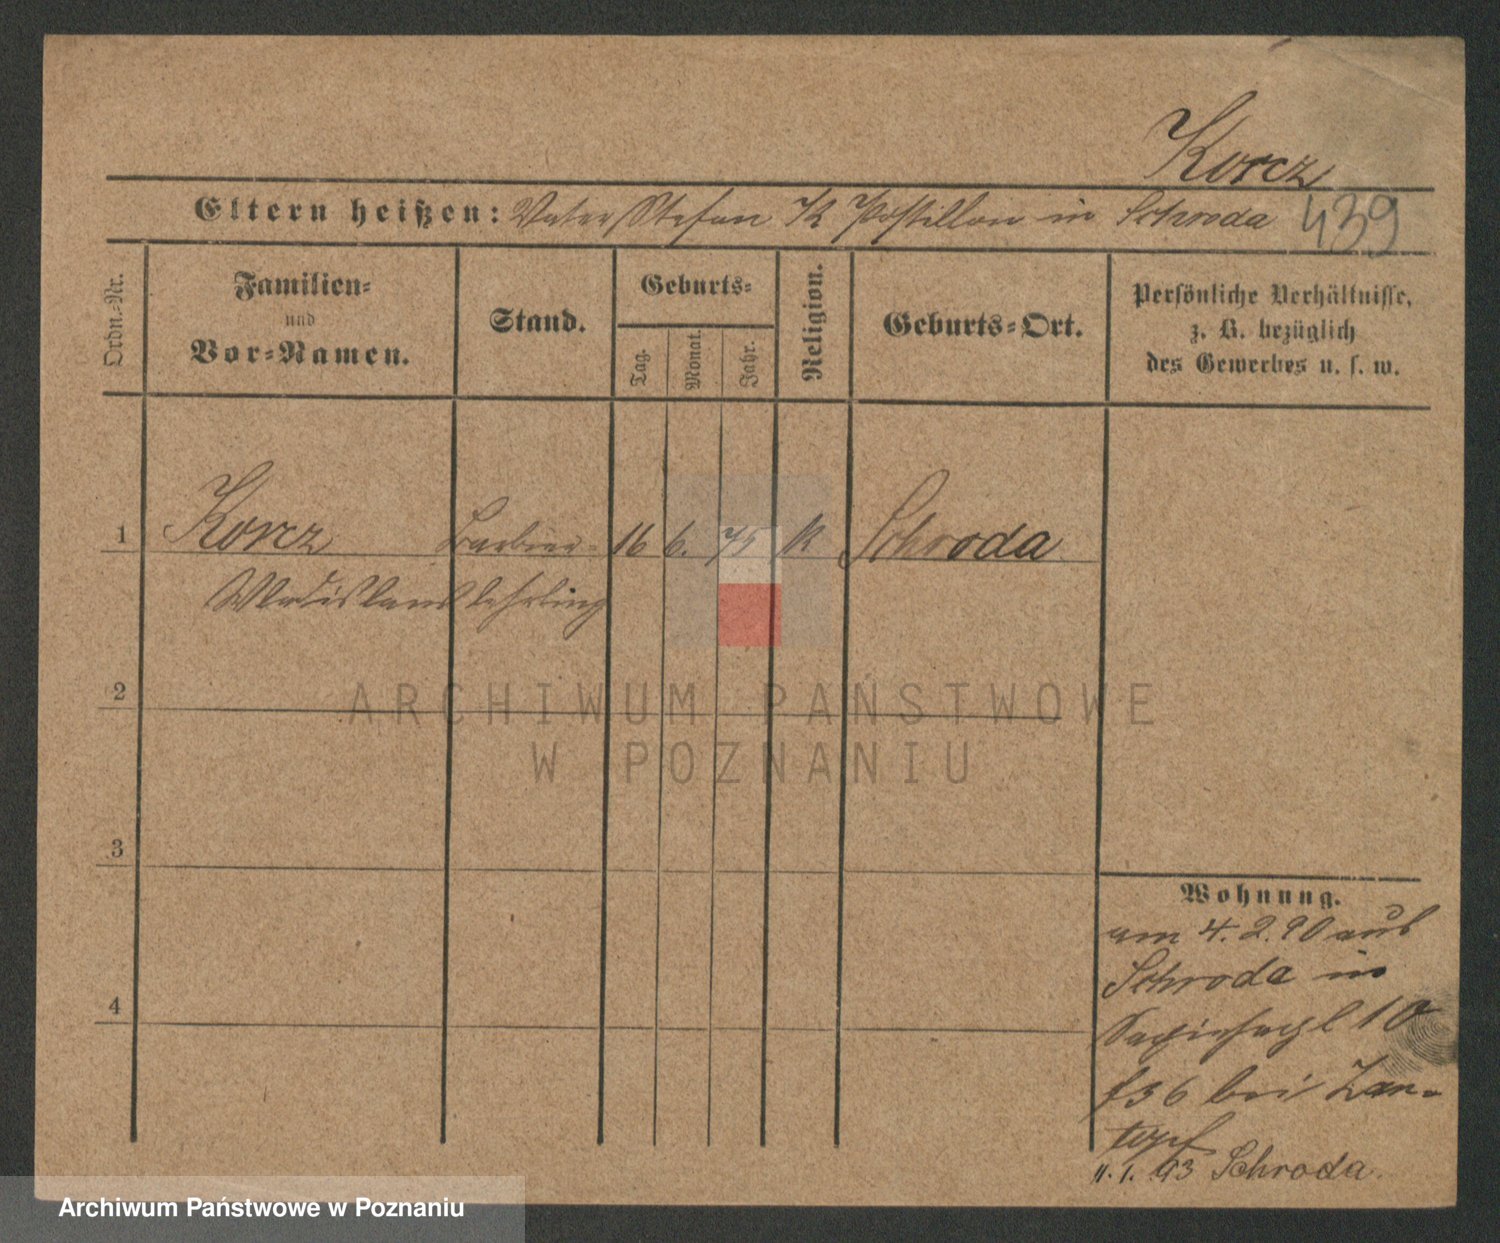 Korcz
Eltern heißen: Vater Stefan K Postillon in Schroda 439
Ordn.-Nr.
Familien-
und
Vor-Namen.
Stand.
Geburts-
Tag.
Monat.
Jahr.
Religion.
Geburts-Ort.
Persönliche Verhältnisse,
z. B. bezüglich
des Gewerbes u. s. w.
1 Korcz Barbier- 16 6. 75 K Schroda
Wladislaus lehrling
2
ARCHIWUM PAŃSTWOWE
W POZNANIU
3
4
Wohnung.
am 4.2.90 aus
Schroda in
Sapiehapl 10
f36 bei Zan-
topf
11.1.93 Schroda.
Archiwum Państwowe w Poznaniu